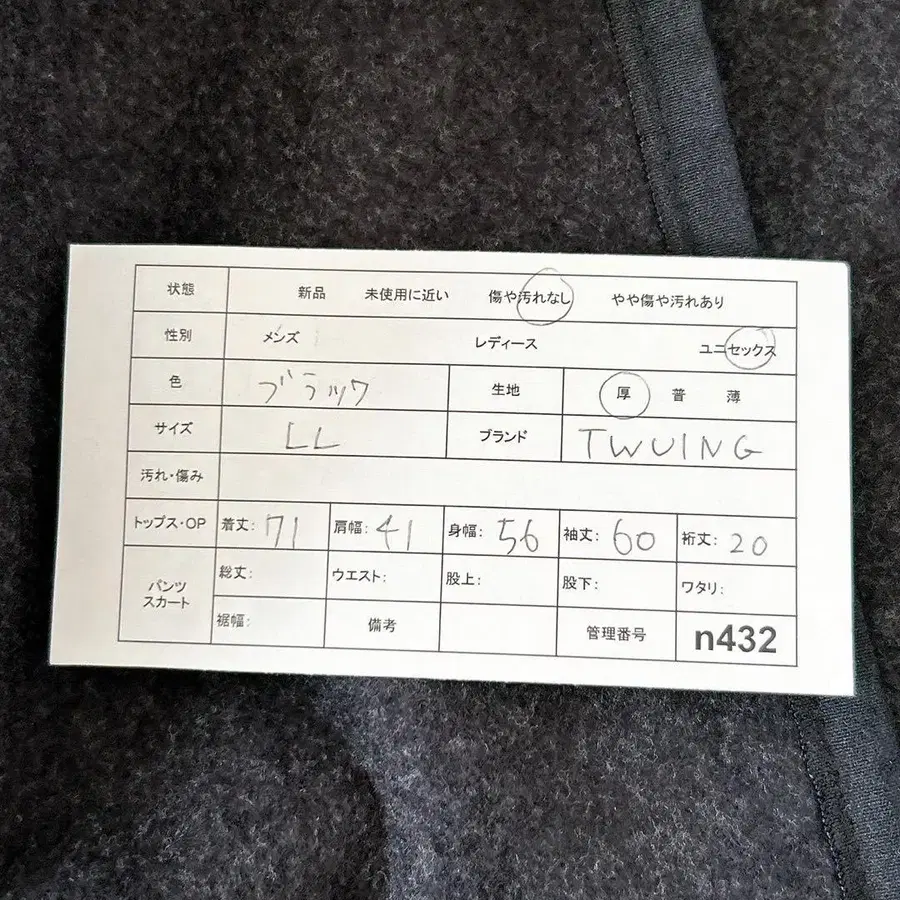 状態 新品 未使用に近い 傷や汚れなし やや傷や汚れあり
性別 メンズ レディース ユニセックス
色 ブラック 生地 厚 普 薄
サイズ LL ブランド TWUING
汚れ・傷み
トップス・OP 着丈: 71 肩幅: 41 身幅: 56 袖丈: 60 裄丈: 20
パンツ スカート 総丈: ウエスト: 股上: 股下: ワタリ:
裾幅: 備考 管理番号 n432